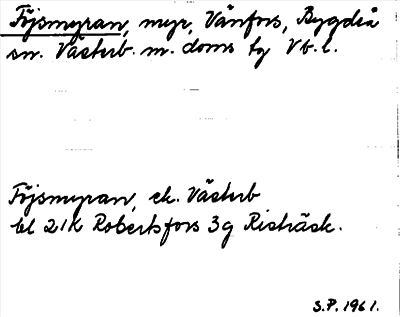 Töjsmyran, myr, Vänfors, Bygdeå
sn. Västerb. m. doms tg Vb. l.
Töjsmyran, ek. Västerb
bl 21K Robertsfors 3g Risträsk.
S.P. 1961.